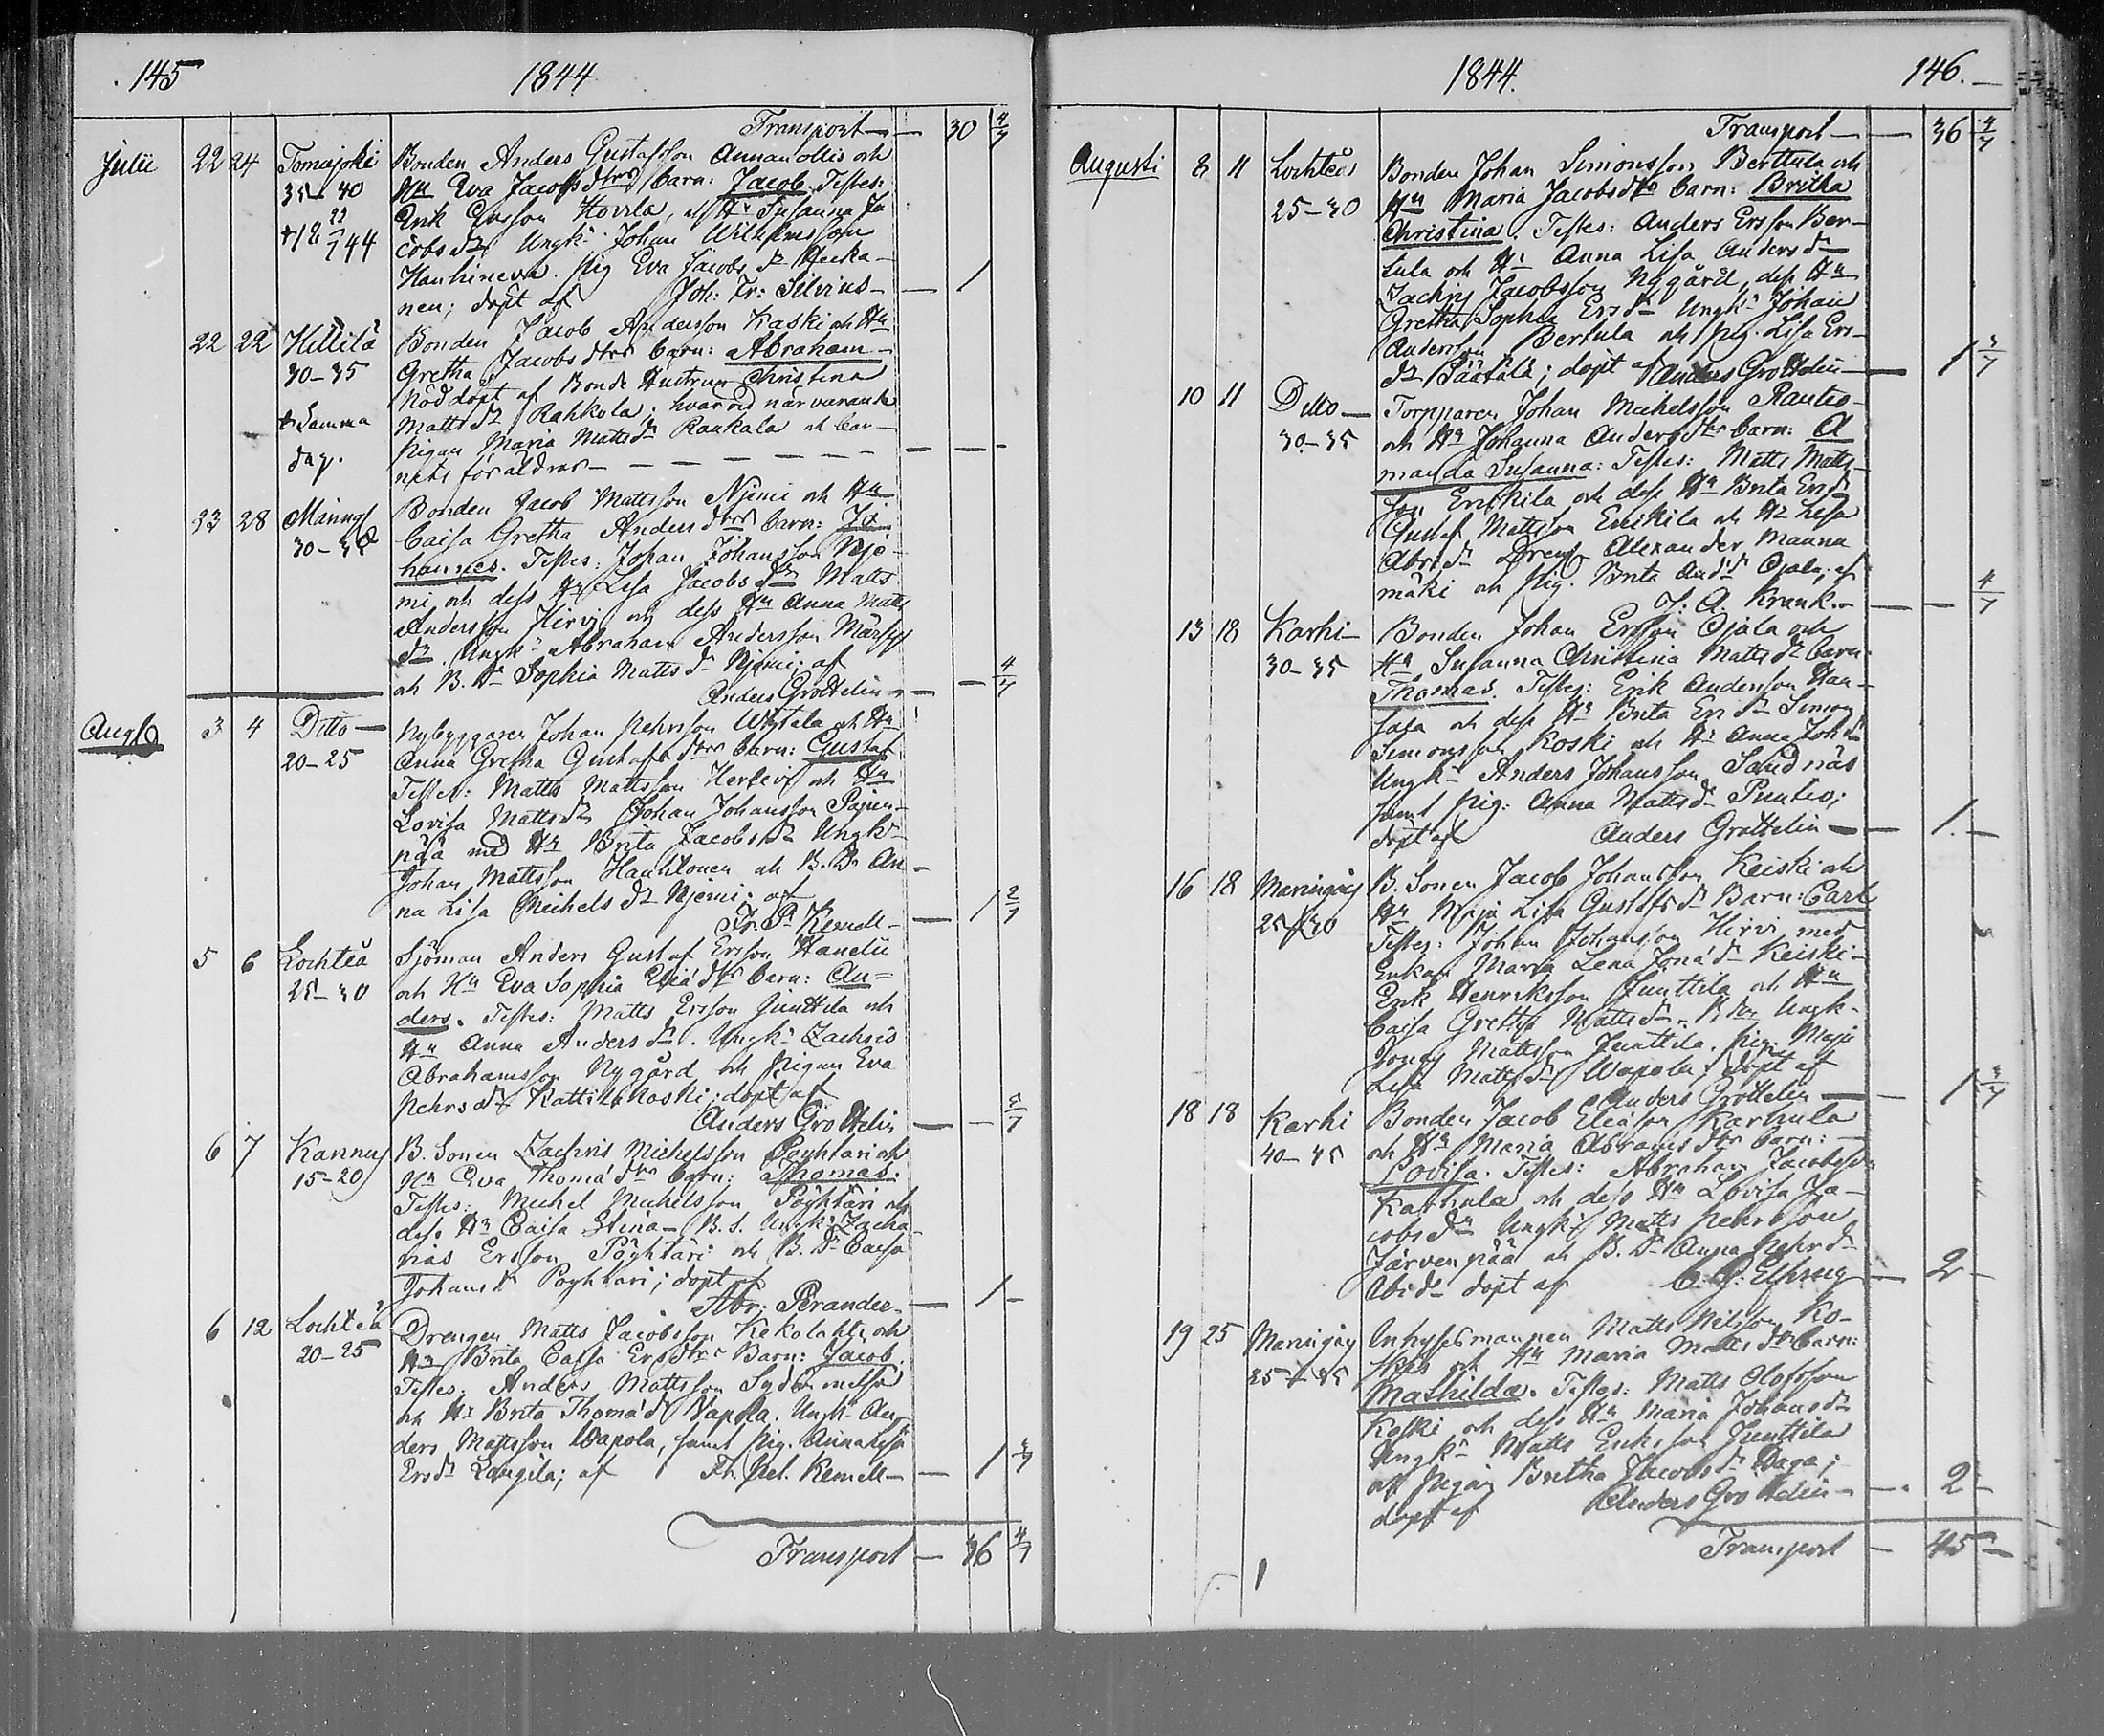 145
1844
Transport — 30 4/7
Julii 22 24 Tomajoki Bonden Anders Gustafsson Annanollis och
35–40 Hu Eva Jacobsdtrs barn: Jacob. Testes:
Erik Ersson Hovila, Hu Susanna Ja
cobs dr Ungk. Johan Wilhelmsson
Hanhineva. Pig Eva Jacobs dr
nen; döpt af Joh: Fr: Silvius — 1
22 22 Killilä Bonden Jacob Andersson Kaski och Hu
30–35 Gretha Jacobs dtrs barn: Abraham
Nöddöpt af Bonde Hustrun Christina
+ Samma Matts dr Rahkola; hvarvid närvarande
dag. Pigan Maria Matts dr Raukala och bar-
nets föräldrar
23 28 Bonden Jacob Mattsson Njemi och Hu
30–35 Caisa Gretha Anders dtrs barn: Jo
hannes. Testes: Johan Johansson Nje-
mi, och dess Hu Lisa Jacobs dr Matts
Andersson Hirvi och dess Hu Anna Matts
dr. Ungk. Abraham Andersson
och B. Dr Sophia Matts dr Njemi; af
Anders Grottelin — 4/7
3 4 Ditto — Nybyggaren Johan Pehrsson och Hu
20–25 Anna Gretha Gustafs dtrs barn: Gustaf
Testes: Matts Mattsson Herlevi och Hu
Lovisa Matts dr Johan Johansson Pajun-
pää med Hu Brita Jacobs dr Ungk.
Johan Mattsson Hauhtonen och B. Dr An-
na Lisa Michels dr Njemi; af
Fr. P. Kemell — 1 2/7
5 6 Lochteå Sjöman Anders Gustaf Ersson Hanelii
25–30 och Hu Eva Sophia dtrs barn: An=
ders. Testes: Matts Ersson Junttila och
Hu Anna Anders dr. Ungk. Zachris
Abrahamsson Nygård och Pigan Eva
Pehrs dr Kattilakoski; döpt af
Anders Grottelin
6 7 Kannus B. Sonen Zachris Michelsson Pöyhtäri och
15–20 Hu Eva Thomæ dtrs barn: Thomas.
Testes: Michel Michelsson Pöyhtäri och
dess Hu Caisa Stina — B. S. Ungk. Zacha-
rias Ersson Pöyhtäri och B. Dr Caisa
Johans dr Pöyhtäri; döpt af
Abr: Perander — 1 –
6 12 Lochteå Drengen Matts Jacobsson Kekolahti och
20–25 Hu Brita Caisa Ers dtrs Barn: Jacob.
Testes: Anders Mattsson
och Hu Brita Thomæ dr Wapola. Ungk. An-
ders Mattsson Wapola, samt Pig. Anna Lisa
Ers dr Langila; af Fr. Pet. Kemell — 1
Transport — 36 4/7
1844.
146.
Transport — 36 4/7
Augusti 8 11 Lochteå Bonden Johan Simonsson Berttula och
25–30 Hu Maria Jacobs dtrs barn: Britha
Christina. Testes: Anders Ersson Ber-
tula och Hu Anna Lisa Anders dr
Zachris Jacobsson Nygård, dess Hu
Gretha Sophia Ers dr Ungk. Johan
Andersson Bertula och Pig. Lisa Ers-
dr; döpt af Anders Grottelin — 1 3/7
10 11 Ditto — Torpparen Johan Michelsson Rautio
30–35 och Hu Johanna Anders dtrs barn: A
manda Susanna: Testes: Matts Matts-
son Erickila och dess Hu Brita Ers dr
Gustaf Mattsson Erickila och Hu Lisa
Abr:s dr Dreng Alexander Manna
mäki och Pig. Brita And:s dr Ojala; af
J: A. Krank. — 4/7
13 18 Karhi — Bonden Johan Ersson Ojala och
30–35 Hu Susanna Christina Matts dr barn
Thomas. Testes: Erik Andersson Han-
saga och dess Hu Brita Ers dr Simon
Simonsson Koski och Hu Anna Joh dr
Ungk. Anders Johansson Sandnäs
samt Pig: Anna Matts dr Puutio;
döpt af Anders Grottelin — 1. —
16 18 Maringais B. Sonen Jacob Johansson Keiski och
25–30 Hu Maja Lisa Gustafs dr Barn: Carl
Testes: Johan Johansson Hirvi med
Enkan Maria Lena Jonæ dr Keiski —
Erik Henriksson Junttila och Hu
Caisa Gretha Matts dr. Ungk.
Jonas Mattsson Junttila. Pig. Maja
Lisa Matts dr Wapola; döpt af
Anders Grottelin — 1 3/7
18 18 Karhi Bonden Jacob Eliasson Karhula
40–45 och Hu Maria Abrams dtrs barn:
Lovisa. Testes: Abraham Jacobsson
Karhula och dess Hu Lovisa Ja-
cobs dr Ungk. Matts Pehrsson
Järvenpää och B. Dr Anna Pehrs dr
ibid döpt af C. G: Elfving — 2 –
19 25 Maringais Inhysesmannen Matts Nilsson Ko-
och Hu Maria Matts dtrs barn:
Mathilda. Testes: Matts Olofsson
Koski och dess Hu Maria Johans dr
Ungk. Matts Eriksson Junttila
och Pigan Britha Jacobs dr Haga;
döpt af Anders Grottelin — 2 –
Transport — 45 —